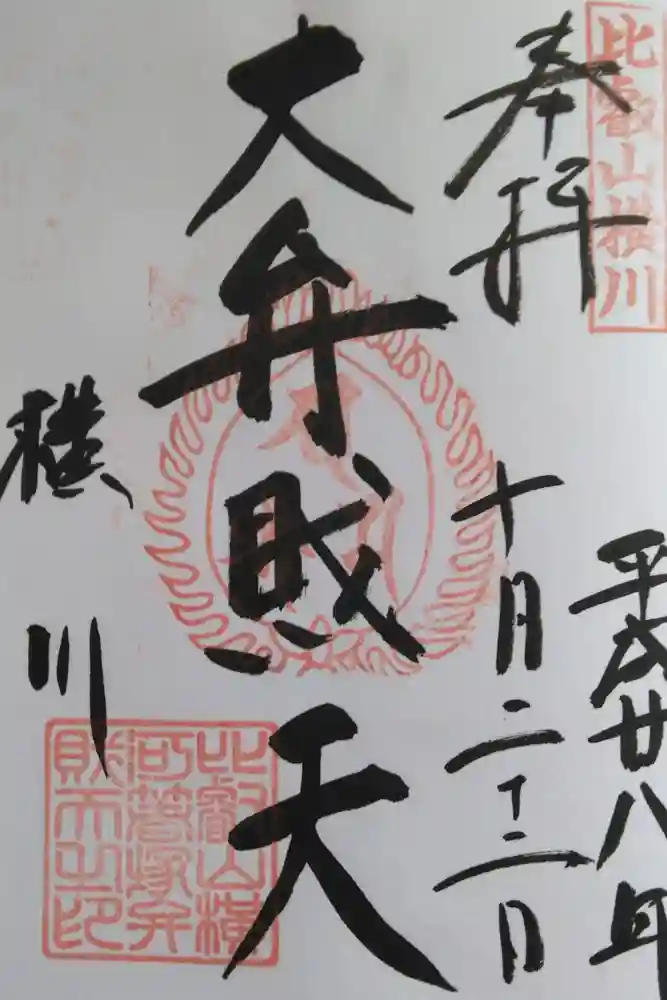 比叡山横川
奉拝
平成廿八年
十月二十二日
大弁財天
横川
比叡山横
河箸塚弁
財天之印